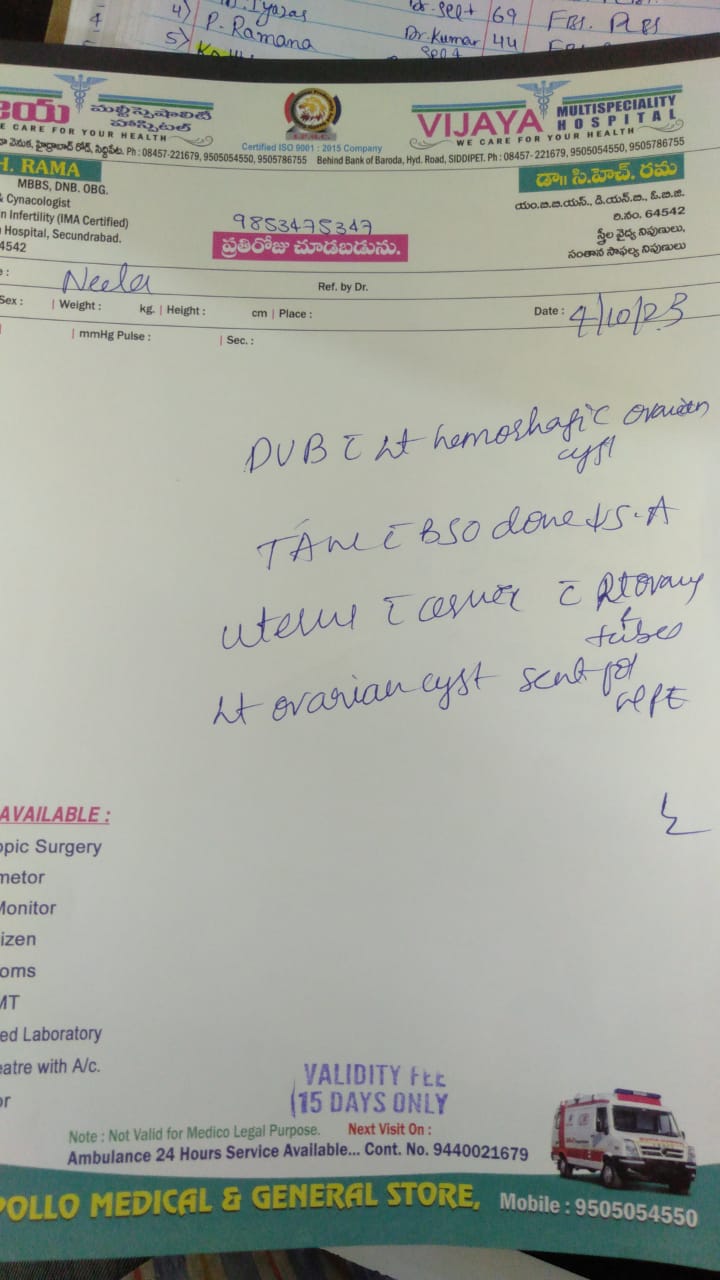 4) Iyajas
Dr. Spl+ 69
P. Ramana
Dr. Kumar 44 FBS. PLBS
5)
మల్టీస్పెషాలిటీ
హాస్పిటల్
E CARE FOR YOUR HEALTH
Certified ISO 9001 : 2015 Company
VIJAYA MULTISPECIALITY
HOSPITAL
WE CARE FOR YOUR HEALTH
హైద్రాబాద్ రోడ్, సిద్దిపేట. Ph : 08457-221679, 9505054550, 9505786755 Behind Bank of Baroda, Hyd. Road, SIDDIPET. Ph : 08457- 221679, 9505054550, 9505786755
H. RAMA
MBBS, DNB. OBG.
& Cynacologist
n Infertility (IMA Certified)
Hospital, Secundrabad.
4542
9853475347
ప్రతిరోజు చూడబడును.
డా॥ సి.హెచ్. రమ
యం.బి.బి.యస్., డి.యన్.బి., ఓ.బి.జి.
రి.నం. 64542
స్త్రీల వైద్య నిపుణులు,
సంతాన సాఫల్య నిపుణులు
e : Neela Ref. by Dr.
Sex : | Weight : kg. | Height : cm | Place : Date : 4/10/23
| mmHg Pulse : | Sec. :
DUB c̄ Lt hemorhagic ovarian
cyst
TAH c̄ BSO done ↓ S.A
uterus c̄ cervix c̄ Rt ovary
& tubes
Lt ovarian cyst sent for
HPE
AVAILABLE :
opic Surgery
metor
Monitor
izen
oms
MT
ed Laboratory
eatre with A/c.
or
VALIDITY FEE
15 DAYS ONLY
Note : Not Valid for Medico Legal Purpose. Next Visit On :
Ambulance 24 Hours Service Available... Cont. No. 9440021679
POLLO MEDICAL & GENERAL STORE, Mobile : 9505054550